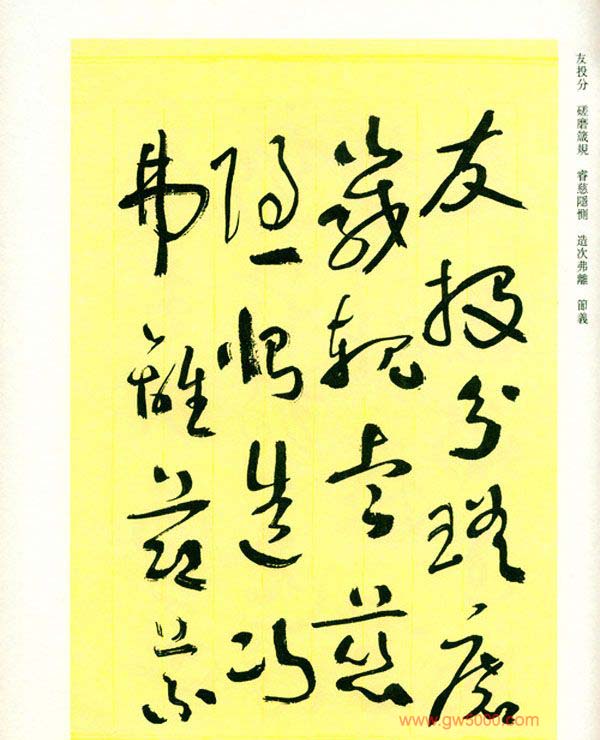 友投分　磋磨箴規　睿慈隱惻　造次弗離　節義
友投分磋磨
箴規睿慈
隱惻造次
弗離節義
www.gw5000.com